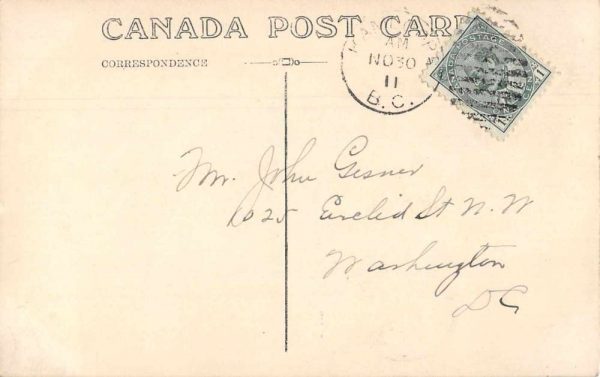 CANADA POST CARD
CORRESPONDENCE
AM
NO 30
11
B.C.
Mr. John Gesner
1025 Euclid St N.W
Washington
DC